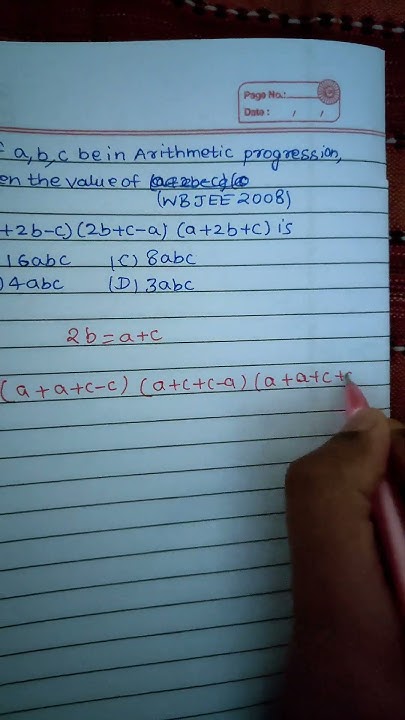 Page No.:
Date: / /
a, b, c be in Arithmetic progression,
en the value of
(WBJEE 2008)
+2b-c) (2b+c-a) (a+2b+c) is
16abc (C) 8abc
) 4abc (D) 3abc
2b = a+c
(a+a+c-c) (a+c+c-a) (a+a+c+c